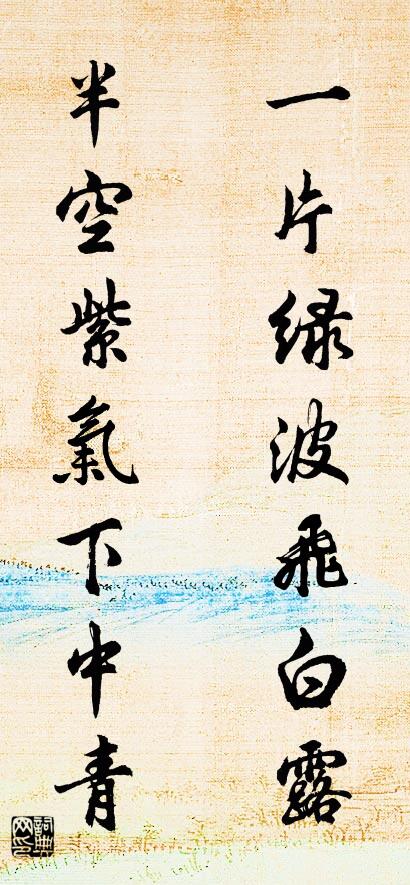 一片绿波飛白露
半空紫氣下中青
詞典網印